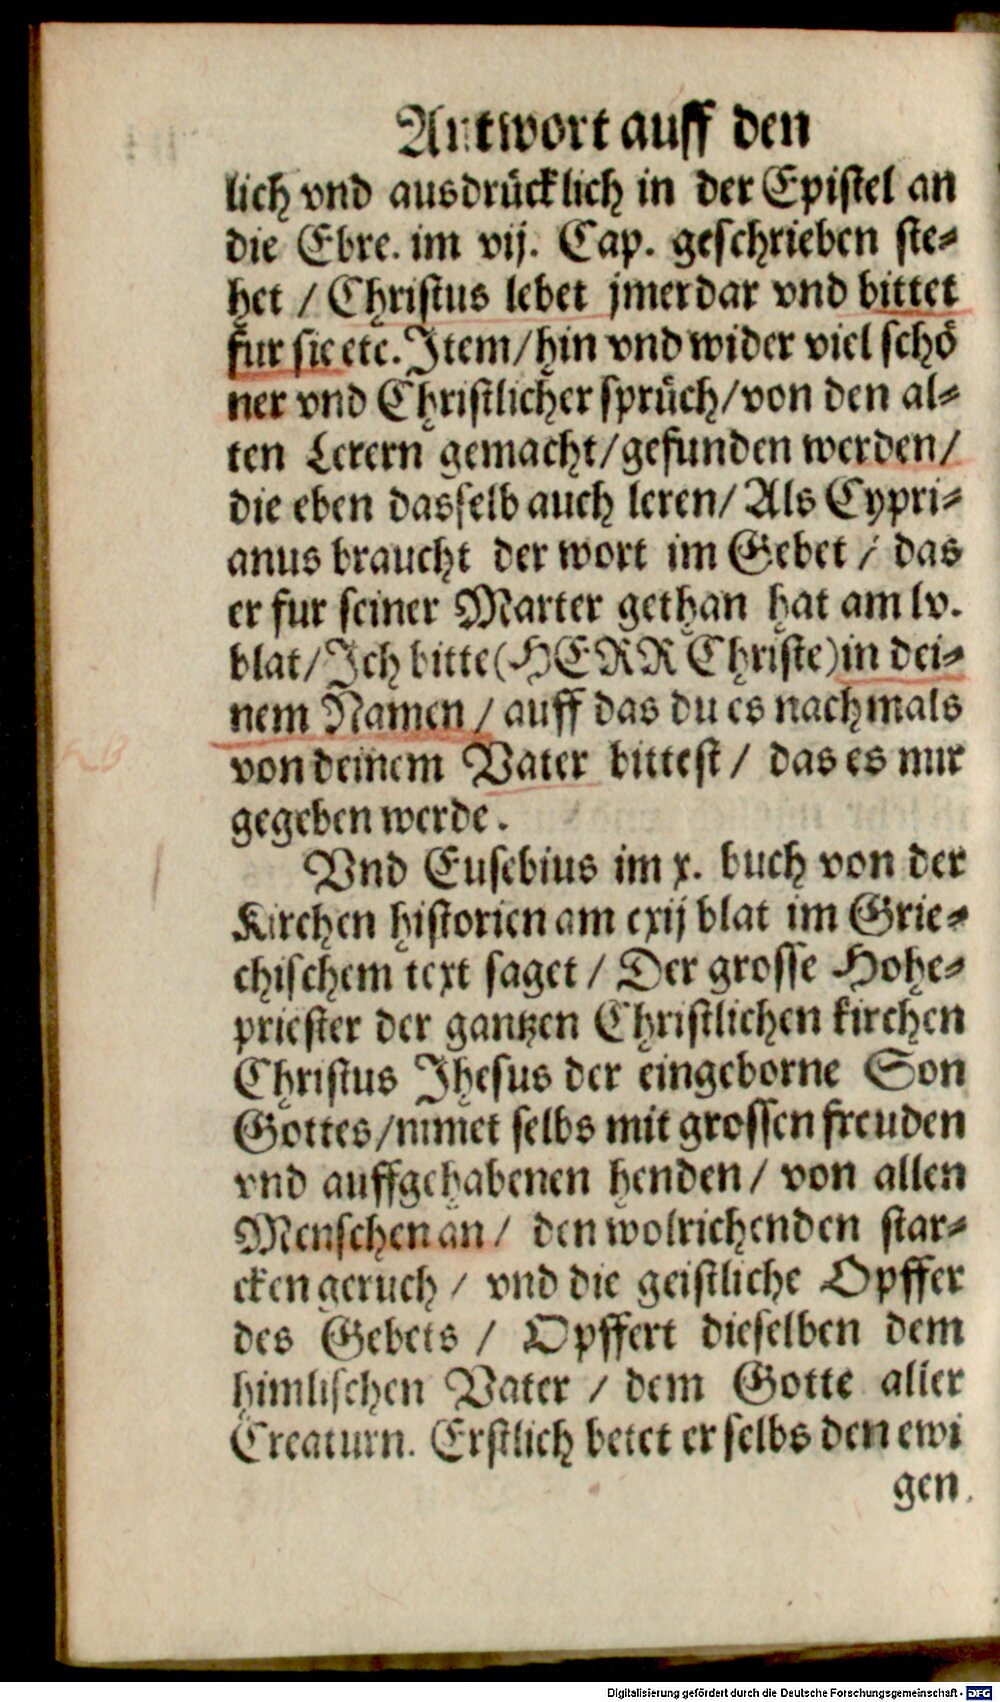 Antwort auff den
lich vnd ausdrücklich in der Epistel an
die Ebre. im vij. Cap. geschrieben ste⸗
het / Christus lebet jmerdar vnd bittet
fur sie etc. Item / hin vnd wider viel schö
ner vnd Christlicher sprüch / von den al⸗
ten Lerern gemacht / gefunden werden /
die eben dasselb auch leren / Als Cypri⸗
anus braucht der wort im Gebet / das
er fur seiner Marter gethan hat am lv.
blat / Ich bitte (HERR Christe) in dei⸗
nem Namen / auff das du es nachmals
von deinem Vater bittest / das es mir
gegeben werde.
Vnd Eusebius im x. buch von der
Kirchen historien am cxij blat im Grie⸗
chischem text saget / Der grosse Hohe⸗
priester der gantzen Christlichen kirchen
Christus Jhesus der eingeborne Son
Gottes / nimet selbs mit grossen freuden
vnd auffgehabenen henden / von allen
Menschen an / den wolrichenden star⸗
cken geruch / vnd die geistliche Opffer
des Gebets / Opffert dieselben dem
himlischen Vater / dem Gotte aller
Creaturn. Erstlich betet er selbs den ewi
gen
Digitalisierung gefördert durch die Deutsche Forschungsgemeinschaft - DFG